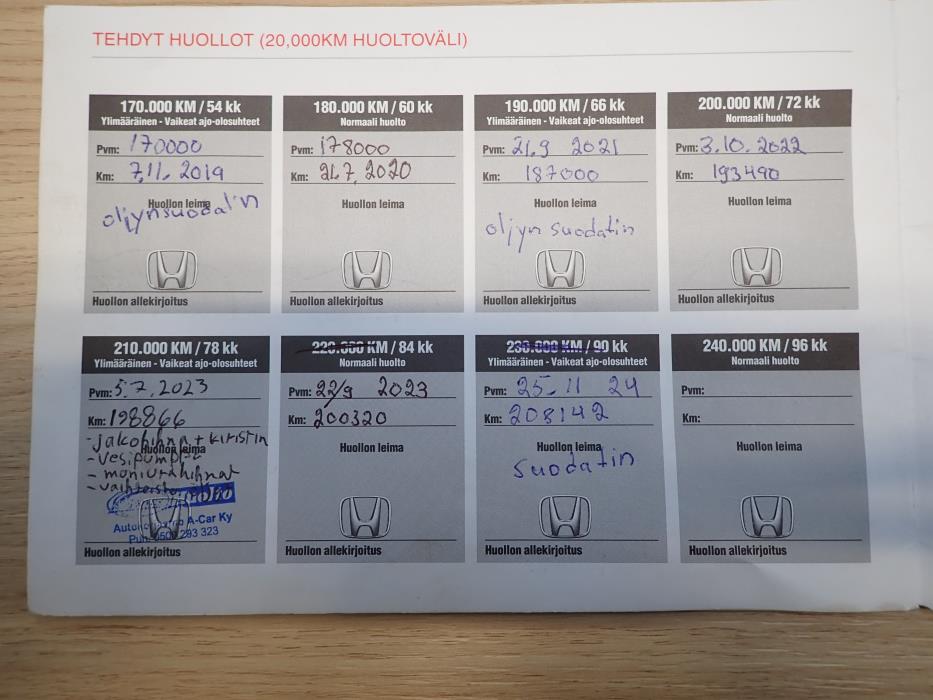 TEHDYT HUOLLOT (20,000KM HUOLTOVÄLI)
170.000 KM / 54 kk
Ylimääräinen - Vaikeat ajo-olosuhteet
Pvm: 170000
Km: 7.11. 2019
Huollon leima
oljynsuodatin
Huollon allekirjoitus
180.000 KM / 60 kk
Normaali huolto
Pvm: 178000
Km: 21.7. 2020
Huollon leima
Huollon allekirjoitus
190.000 KM / 66 kk
Ylimääräinen - Vaikeat ajo-olosuhteet
Pvm: 21.9 2021
Km: 187000
Huollon leima
oljyn suodatin
Huollon allekirjoitus
200.000 KM / 72 kk
Normaali huolto
Pvm: 3.10. 2022
Km: 193490
Huollon leima
Huollon allekirjoitus
210.000 KM / 78 kk
Ylimääräinen - Vaikeat ajo-olosuhteet
Pvm: 5.7.2023
Km: 198866
- jakohihna + kiristin
Huollon leima
- vesipumppu
- moniurahihnat
A-Car Ky
293 323
Huollon allekirjoitus
220.000 KM / 84 kk
Normaali huolto
Pvm: 22/9 2023
Km: 200320
Huollon leima
Huollon allekirjoitus
230.000 KM / 90 kk
Ylimääräinen - Vaikeat ajo-olosuhteet
Pvm: 25-11 24
Km: 208142
Huollon leima
suodatin
Huollon allekirjoitus
240.000 KM / 96 kk
Normaali huolto
Pvm:
Km:
Huollon leima
Huollon allekirjoitus